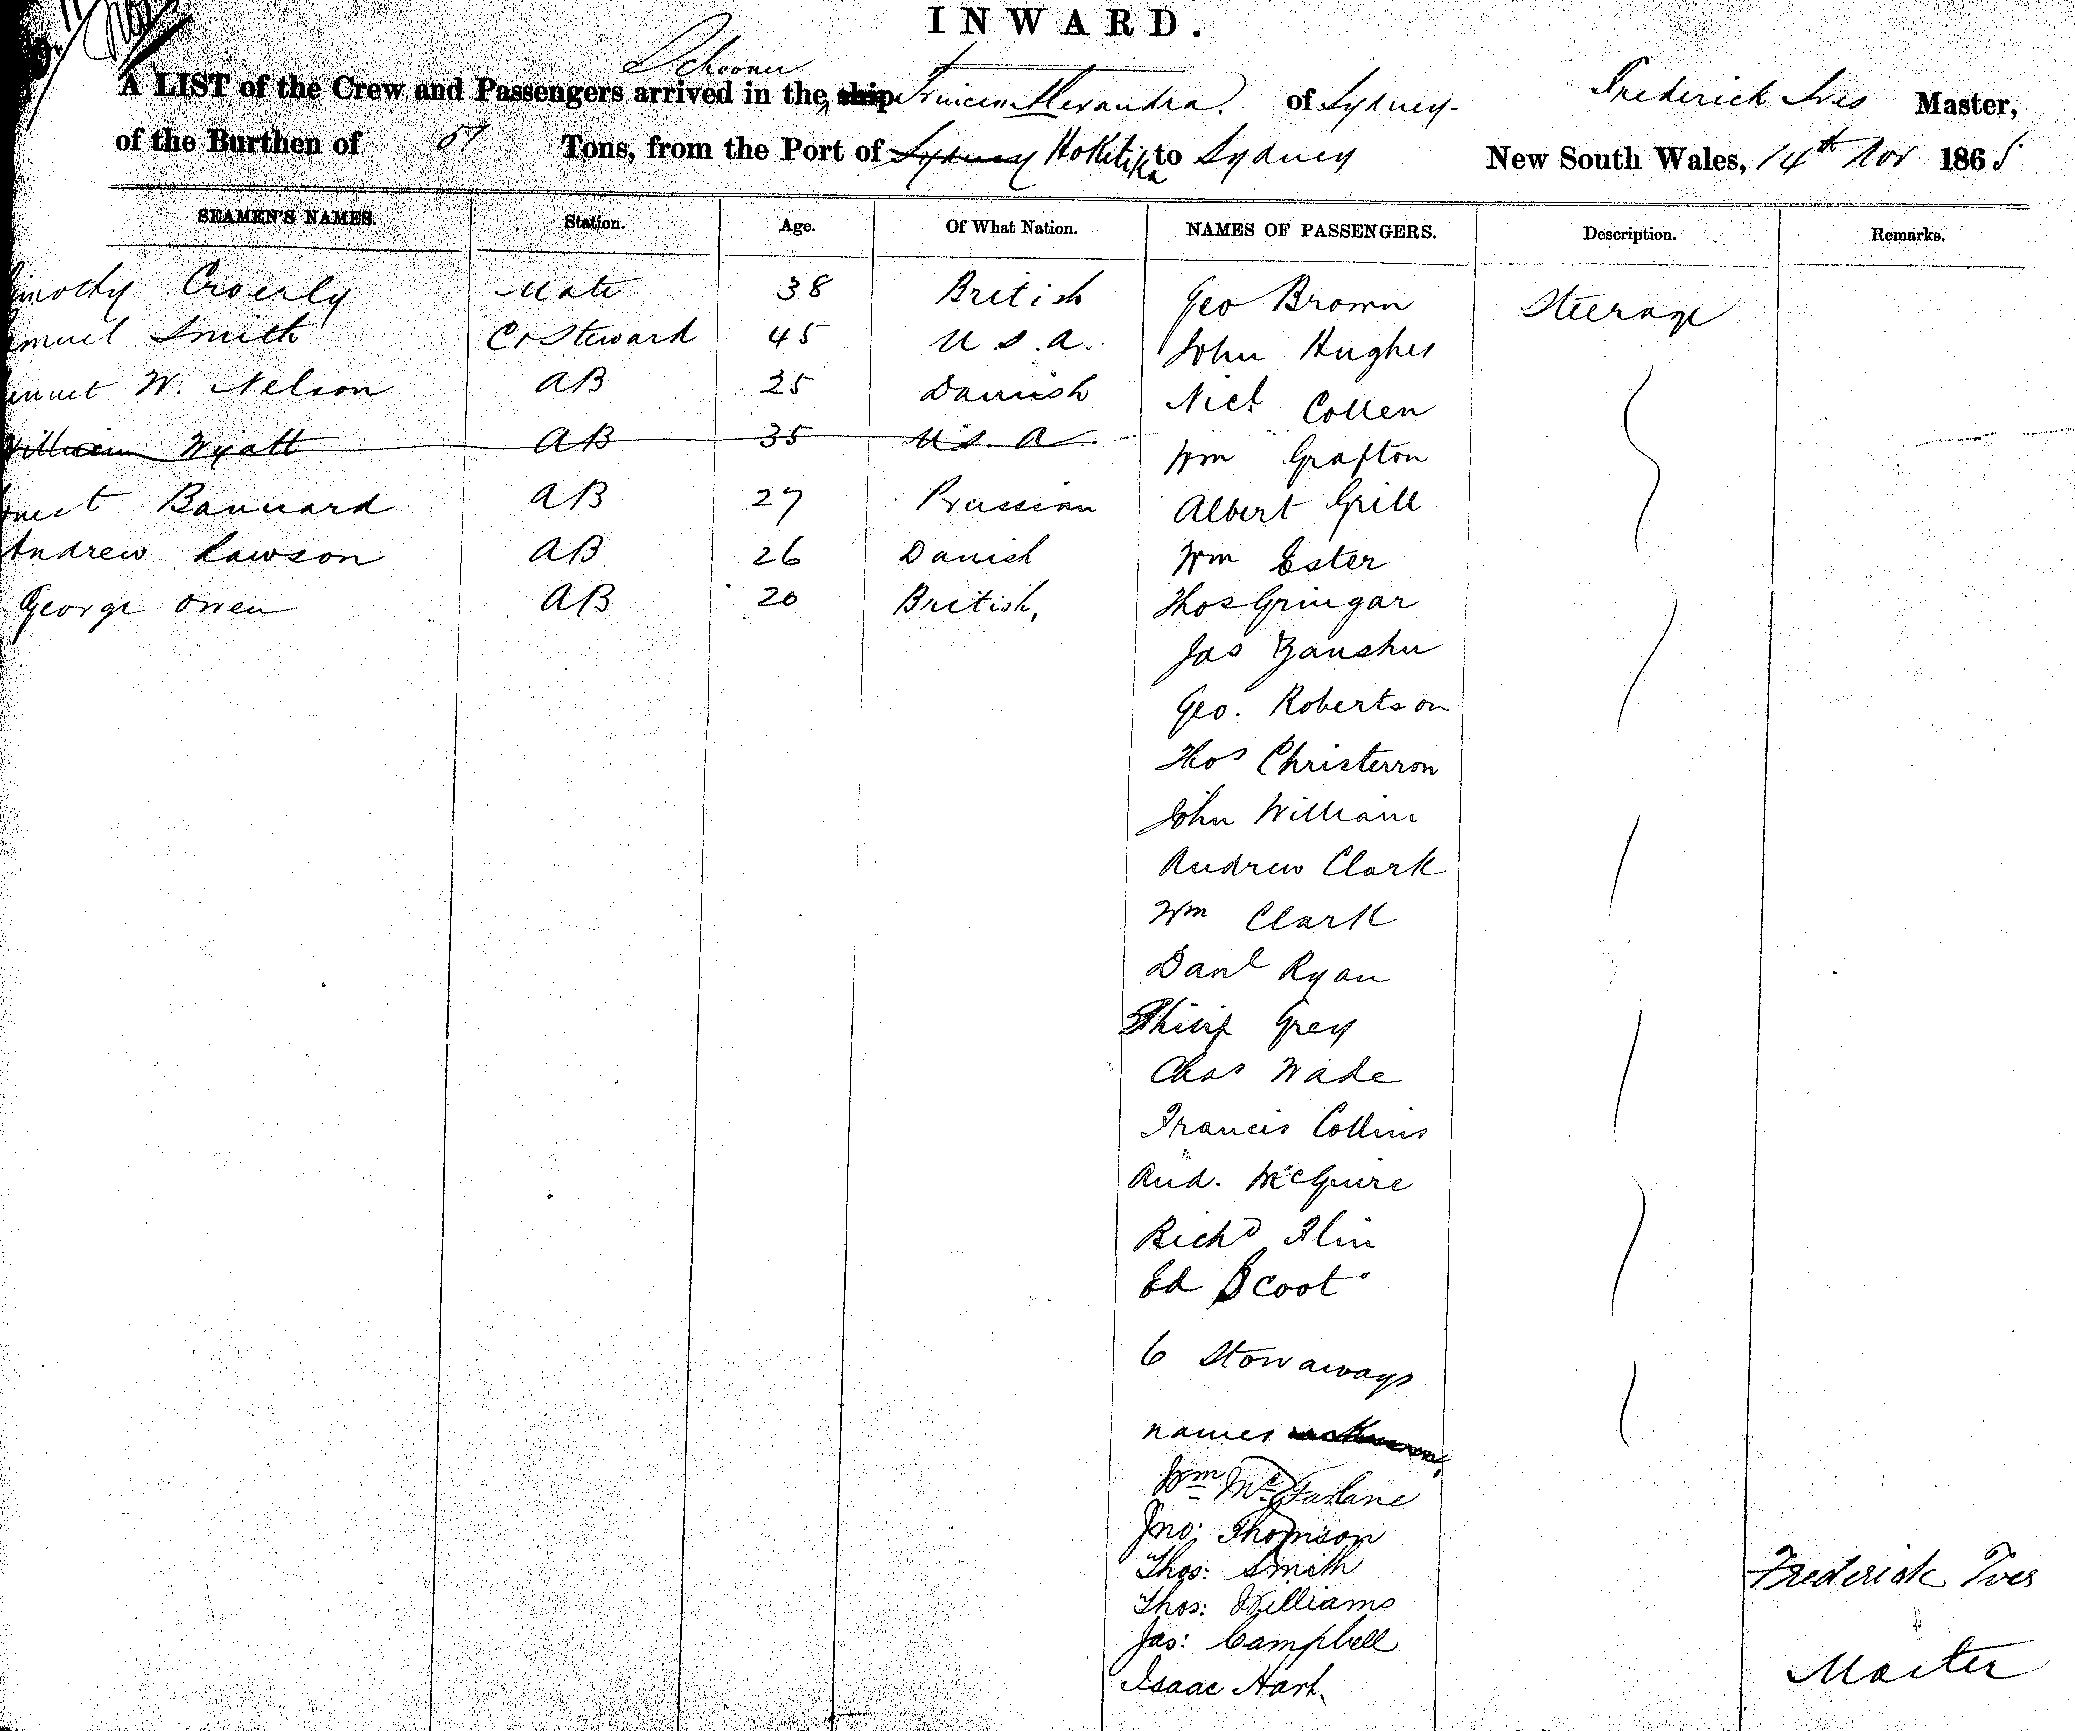 INWARD.
Schooner
A LIST of the Crew and Passengers arrived in the ship Princess Alexandra of Sydney Frederick Ives Master,
of the Burthen of Tons, from the Port of Sydney Hokitika to Sydney New South Wales, 14th Nov 1865
SEAMEN'S NAMES. Station. Age. Of What Nation. NAMES OF PASSENGERS. Description. Remarks.
imothy Crowly Mate 38 British Geo Brown Steerage
muel Smith C & Steward 45 U.S.A. John Hughes
W. Nelson AB 25 Danish Nich Collen
William Wyatt AB 35 U.S.A. Wm Grafton
Bannard AB 27 Prussian Albert Grill
Andrew Lawson AB 26 Danish Wm Ester
George Owen AB 20 British, Thos Gringar
Jas
Geo. Robertson
Thos Christerson
John William
Andrew Clark
Wm Clark
Danl Ryan
Philip Grey
Chas Wade
Francis Collins
And. McGuire
Richd Flin
Ed Scoot
6 Stowaways
names unknown
Wm McFarlane
Jno: Thomson
Thos: Smith
Thos: Williams
Jas: Campbell
Isaac Hart.
Frederick Ives
Master